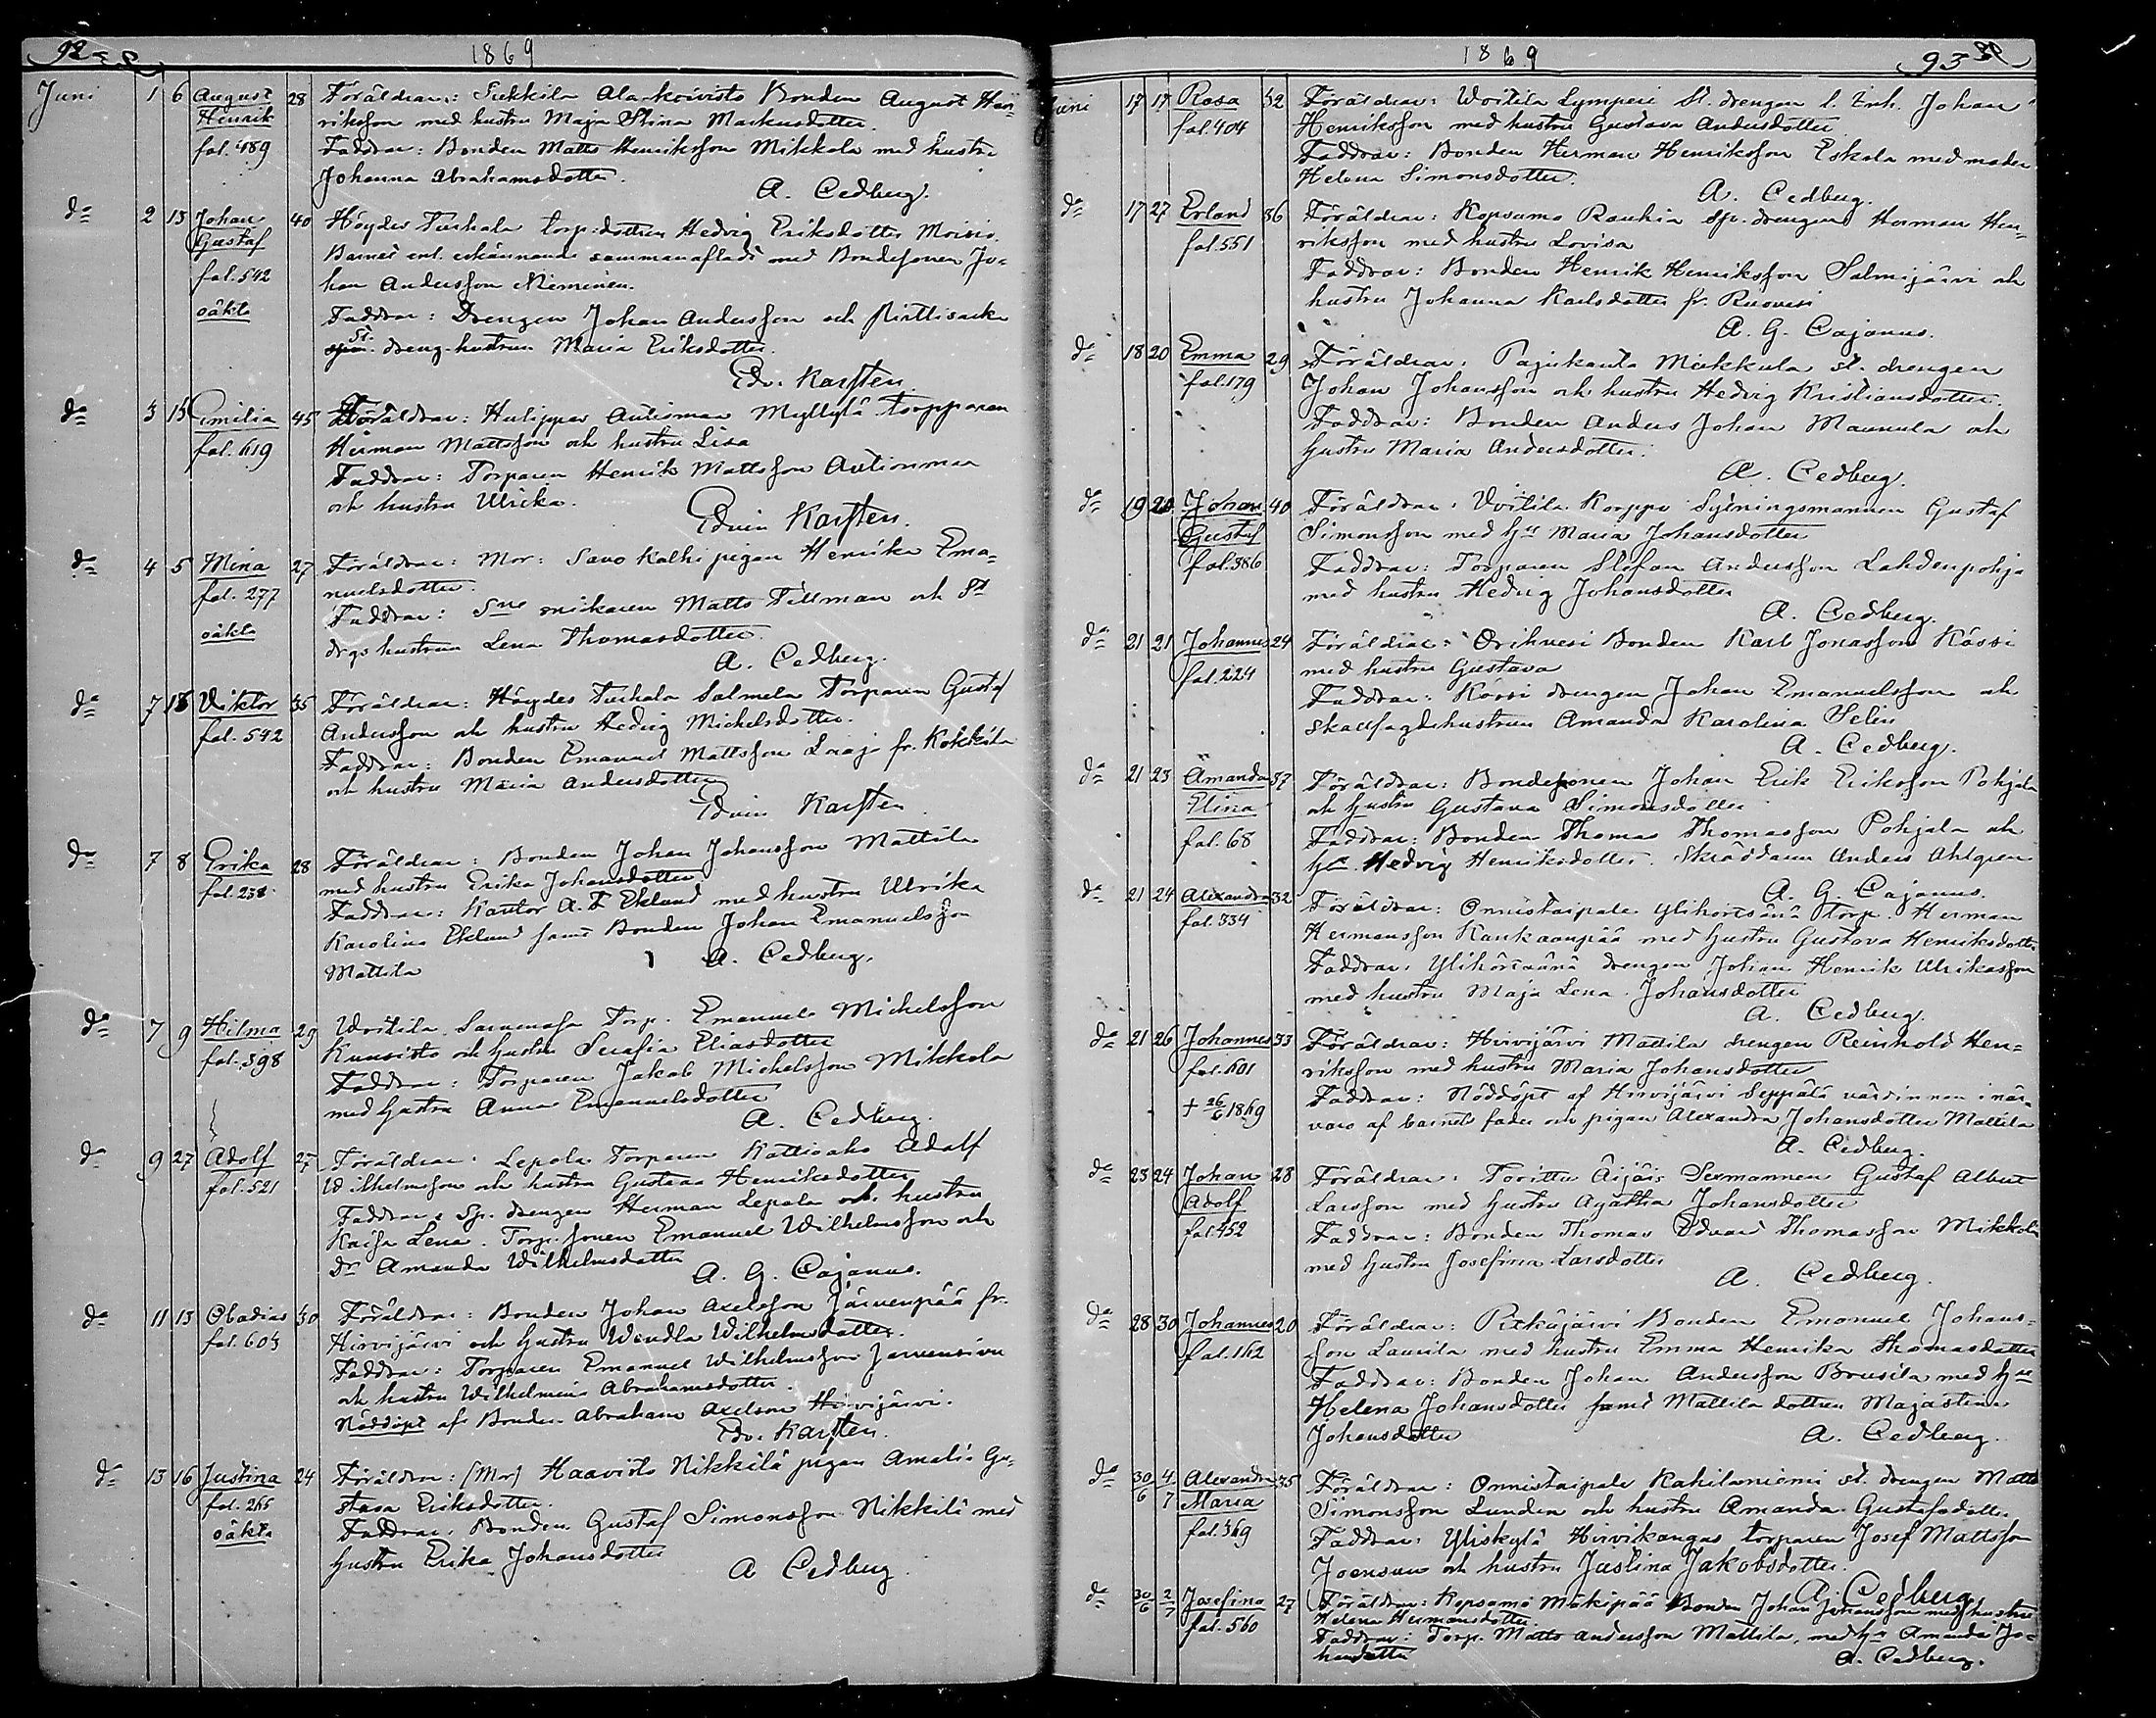 92
1869
Juni 1 6 August 28 Föräldrar: Sukkila Alarkoivisto Bonden August Hen-
Henrik riksson med hustru Maja Stina Markusdotter.
fol. 489 Faddrar: Bonden Matts Henriksson Mikkola med hustru
Johanna Abrahamsdotter.
A. Cedberg.
do 2 13 Johan 40 Höydes Turkala torp. dottren Hedvig Eriksdotter Moisio.
Gustaf Barnet enl. erkännande sammanafladt med Bondesonen Jo-
fol. 542 han Andersson Nieminen.
oäkta Faddrar: Drengen Johan Andersson och
St. dreng. hustrun Maria Eriksdotter.
Edv. Karsten.
do 3 15 Emilia 45 Föräldrar: Hulippas Autioman Myllylä torpparen
fol. 619 Herman Mattsson och hustru Lisa
Faddrar: Torparen Henrik Mattsson Autionmaa
och hustru Ulrika.
Edvin Karsten.
do 4 5 Mina 27 Föräldrar: Mor: Savo Kalhi pigan Henrika Ema-
fol. 277 nuelsdotter.
oäkta Faddrar: Sne snikaren Matts Tillman och St
drgs hustrun Lena Thomasdotter.
A. Cedberg.
do 7 18 Viktor 35 Föräldrar: Höydes Turkala Salmela Torparen Gustaf
fol. 542 Andersson och hustru Hedvig Michelsdotter.
Faddrar: Bonden Emanuel Mattsson Laaja fr. Kokkila
och hustru Maria Andersdotter
Edvin Karsten
do 7 8 Erika 28 Föräldrar: Bonden Johan Johansson Mattila
fol. 238 med hustru Erika Johansdotter
Faddrar: Kantor A. F Eklund med hustru Ulrika
Karolina Eklund samt Bonden Johan Emanuelsson
Mattila A. Cedberg.
do 7 9 Hilma 29 Voitila Sarvensa Torp. Emanuel Michelsson
fol. 398 Kuusisto och hustru Serafia Eliasdotter
Faddrar: Torparen Jakob Michelsson Mikkola
med hustru Anna Emanuelsdotter
A. Cedberg.
do 9 27 Adolf 27 Föräldrar: Lepola Torparen Kattioaho Adolf
fol. 521 Wilhelmsson och hustru Gustava Henriksdotter
Faddrar: Sp. drengen Herman Lepola och hustru
Kaisa Lena. Torp. sonen Emanuel Wilhelmsson och
Dr Amanda Wilhelmsdotter
A. G. Cajanus.
do 11 13 Obadias 30 Föräldrar: Bonden Johan Axelsson Järvenpää fr.
fol. 603 Hirvijärvi och hustru Wendla Wilhelmsdotter.
Faddrar: Torparen Emanuel Wilhelmsson Jarvensivu
och hustru Wilhelmina Abrahamsdotter.
Nöddöpt af Bonden Abraham Axelsson Hirvijärvi.
Edv. Karsten.
do 13 16 Justina 24 Föräldrar: (Mor) Haavisto Nikkilä pigan Amalia Gu-
fol. 265 stava Eriksdotter.
oäkta Faddrar: Bonden Gustaf Simonsson Nikkilä med
hustru Erika Johansdotter
A Cedberg
1869
93
Juni 17 17 Rosa 32 Föräldrar: Voitila Lympere St. drengen l. Inh. Johan
fol. 404 Henriksson med hustru Gustava Andersdotter
Faddrar: Bonden Herman Henriksson Eskola med moder
Helena Simonsdotter.
A. Cedberg.
do 17 27 Erland 36 Föräldrar: Kopsamo Rauhia sp. drengen Herman Hen-
fol. 551 riksson med hustru Lovisa
Faddrar: Bonden Henrik Henriksson Salmijärvi och
hustru Johanna Karlsdotter fr. Ruovesi
A. G. Cajanus.
do 18 20 Emma 29 Föräldrar: Pajukanta Miekkala st. drengen
fol. 179 Johan Johansson och hustru Hedvig Kristiansdotter.
Faddrar: Bonden Anders Johan Mannula och
hustru Maria Andersdotter.
A. Cedberg.
do 19 20 Johan 40 Föräldrar: Voitila Korppi Sytningsmannen Gustaf
Gustaf Simonsson med hu Maria Johansdotter
fol. 386 Faddrar: Torparen Stefan Andersson Lahdenpohja
med hustru Hedvig Johansdotter
A. Cedberg.
do 21 21 Johannes 24 Föräldrar: Orihvesi Bonden Karl Jonasson Kässi
fol. 224 med hustru Gustava
Faddrar: Kässi drengen Johan Emanuelsson och
skallfogdehustrun Amanda Karolina Selin
A. Cedberg.
do 21 23 Amanda 37 Föräldrar: Bondesonen Johan Erik Eriksson Pohjala
Elina och hustru Gustava Simonsdotter
fol. 68 Faddrar: Bonden Thomas Thomasson Pohjala och
hu Hedvig Henriksdotter. Skräddaren Anders Ahlgren
A. G. Cajanus.
do 21 24 Alexandra 32 Föräldrar: Onnistaipale Ylihörtsänä torp. Herman
fol. 334 Hermansson Kankaanpää med hustru Gustava Henriksdotter
Faddrar: Ylihörtsänä drengen Johan Henrik Ulrikasson
med hustru Maja Lena Johansdotter
A. Cedberg.
do 21 26 Johannes 33 Föräldrar: Hirvijärvi Mattila drengen Reinhold Hen-
fol. 601 riksson med hustru Maria Johansdotter
+ 26/6 1869 Faddrar: Nöddöpt af Hirvijärvi Seppälä värdinnan i när-
varo af barnets fader och pigan Alexandra Johansdotter Mattila
A. Cedberg.
do 23 24 Johan 28 Föräldrar: Toritto Äijäis Sexmannen Gustaf Albert
Adolf Larsson med hustru Agatha Johansdotter
fol. 452 Faddrar: Bonden Thomas Edvard Thomasson Mikkola
med hustru Josefina Larsdotter
A. Cedberg.
do 28 30 Johannes 20 Föräldrar: Pitkäjärvi Bonden Emanuel Johans-
fol. 162 son Laurila med hustru Emma Henrika Thomasdotter
Faddrar: Bonden Johan Andersson Brusila med hu
Helena Johansdotter samt Mattila dottren Majastina
Johansdotter A. Cedberg.
do 30/6 4/7 Alexandra 35 Föräldrar: Onnistaipale Kahilaniemi st. drengen Matts
Maria Simonsson Lunden och hustru Amanda Gustafsdotter
fol. 369 Faddrar: Yliskylä Hirvikangas torparen Josef Mattsson
Joensuu och hustru Justina Jakobsdotter.
A. Cedberg
do 30/6 2/7 Josefina 27 Föräldrar: Kopsamo Mäkipää Bonden Johan Johansson med hustru
fol. 560 Helena Hermansdotter
Faddrar: Torp. Matts Andersson Mattila, med hu Amanda Jo-
hansdotter A. Cedberg.